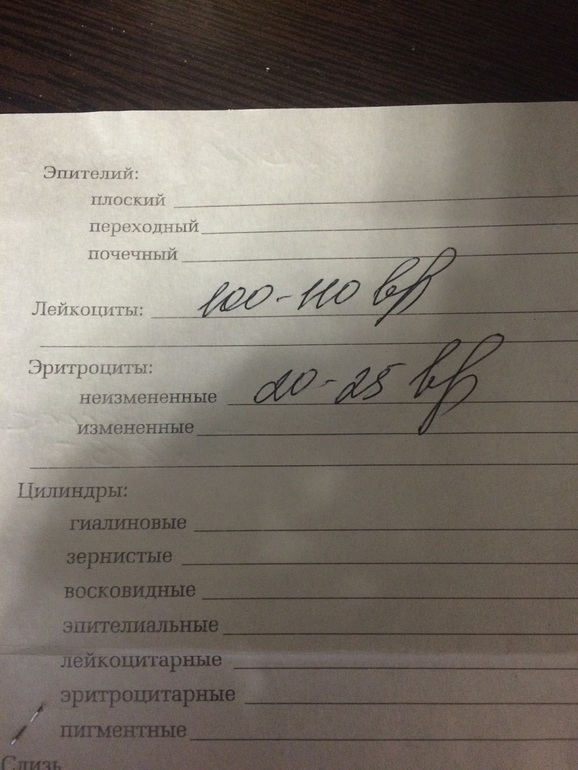 Эпителий:
плоский
переходный
почечный
Лейкоциты: 100-110 в/в
Эритроциты:
неизмененные 20-25 в/в
измененные
Цилиндры:
гиалиновые
зернистые
восковидные
эпителиальные
лейкоцитарные
эритроцитарные
пигментные
Слизь